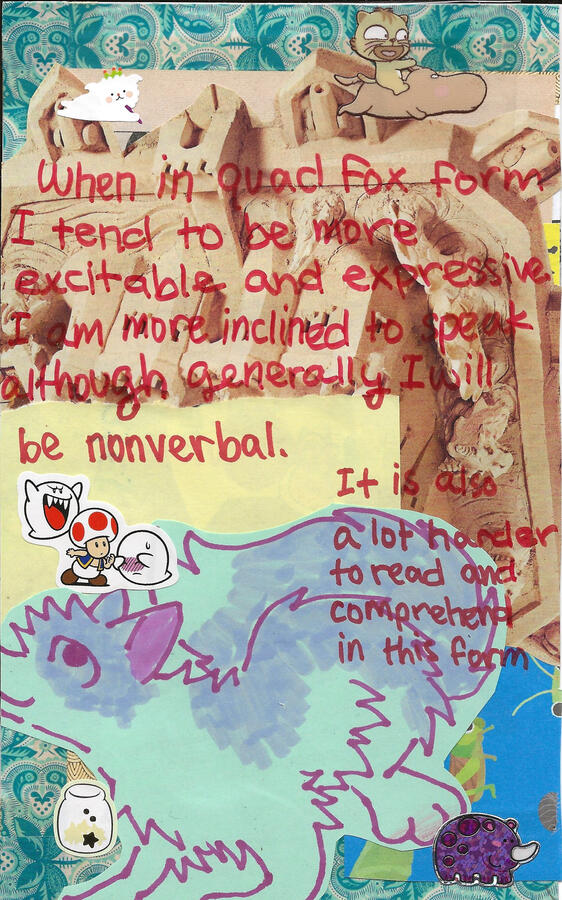 When in quad Fox form
I tend to be more
excitable and expressive
I am more inclined to speak
although generally I will
be nonverbal.
It is also
a lot harder
to read and
comprehend
in this form